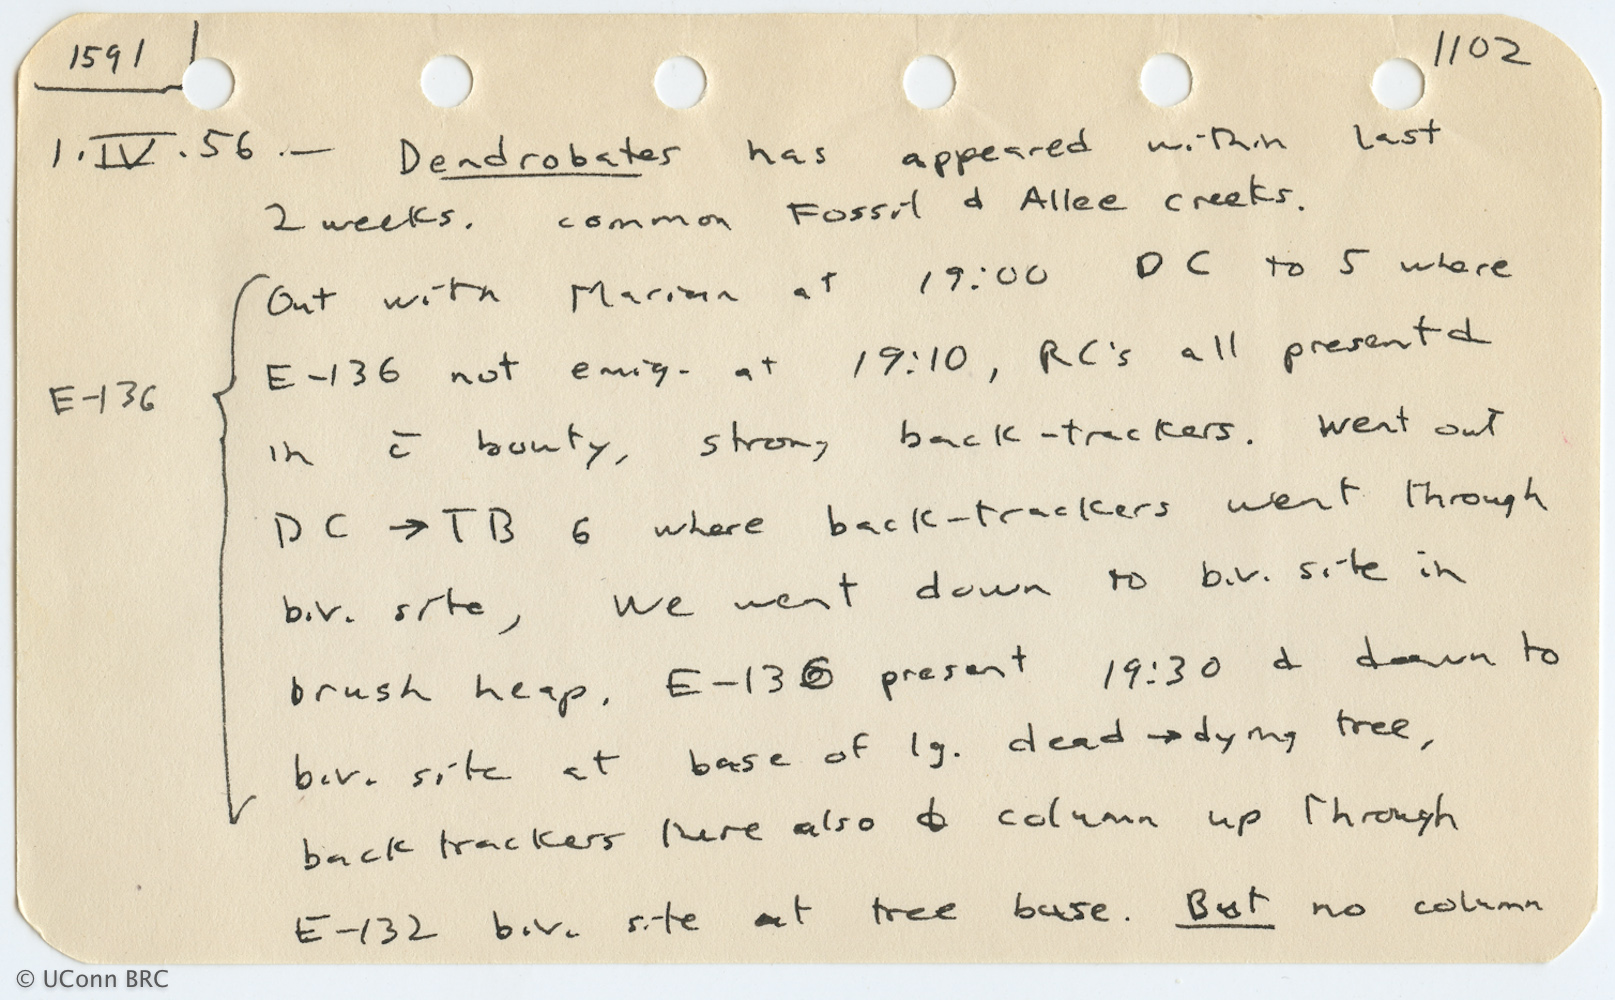 1591
1102
1.IV.56.— Dendrobates has appeared within last
2 weeks. common Fossil & Allee creeks.
Out with Marian at 19:00 DC to 5 where
E-136 not emig. at 19:10, RC's all present &
E-136
in c̄ bouty, strong back-trackers. Went out
DC → TB 6 where back-trackers went through
b.v. site, We went down to b.v. site in
brush heap. E-136 present 19:30 & down to
b.v. site at base of lg. dead → dying tree,
back trackers there also & column up through
E-132 b.v. site at tree base. But no column
© UConn BRC